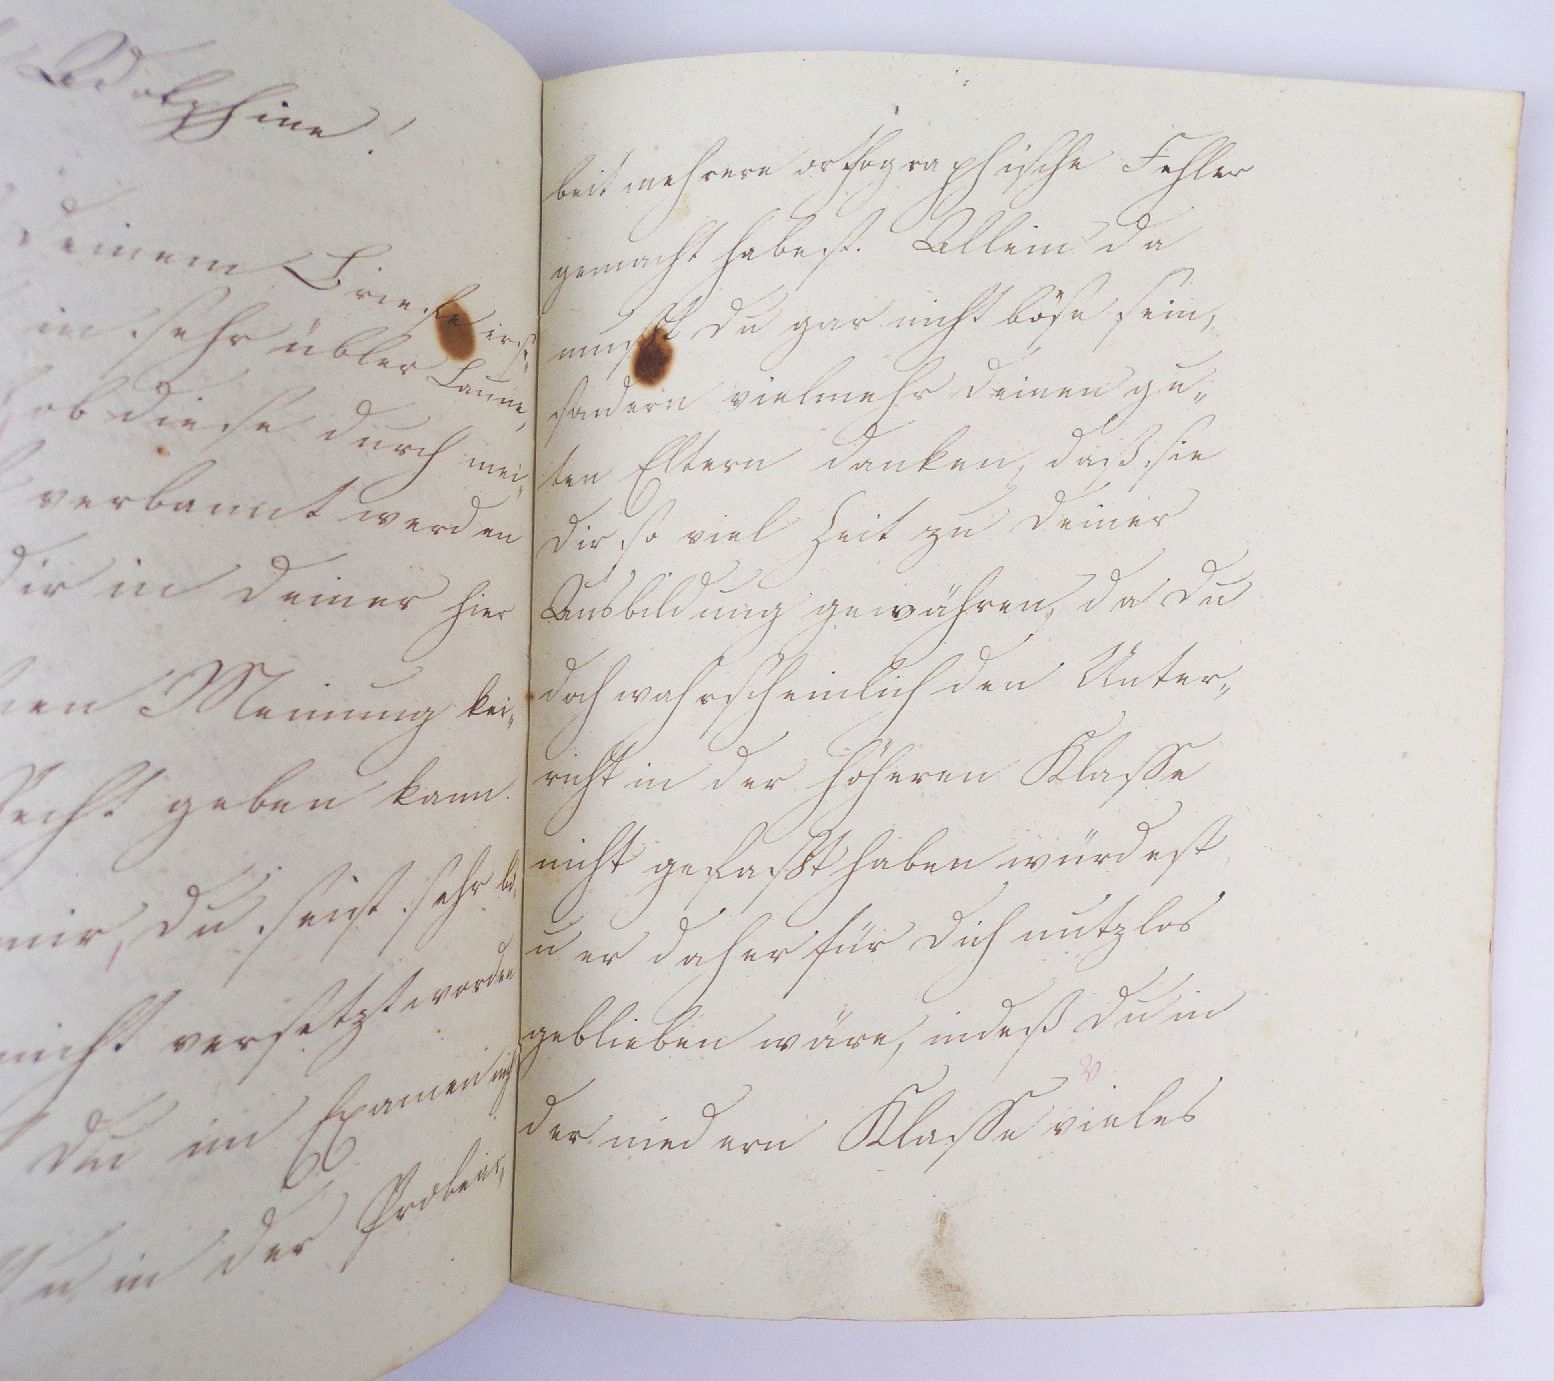 Adolphine!
Deinem Briefe erse-
in sehr übler Laune,
ob diese durch mei-
verbannt werden
dir in deiner hier
Meinung kei-
Recht geben kann.
mir, du seist sehr
nicht versetzt worden
du im Examen
in der Probear-
beit mehrere orthographische Fehler
gemacht habest. Allein da
mußt du gar nicht böse sein,
sondern vielmehr deinen gu-
ten Eltern danken, daß sie
dir so viel Zeit zu deiner
Ausbildung gewähren, da du
doch wahrscheinlich den Unter-
richt in der höheren Klasse
nicht gefaßt haben würdest
u er daher für dich nutzlos
geblieben wäre, indeß du in
der niedern Klasse vieles